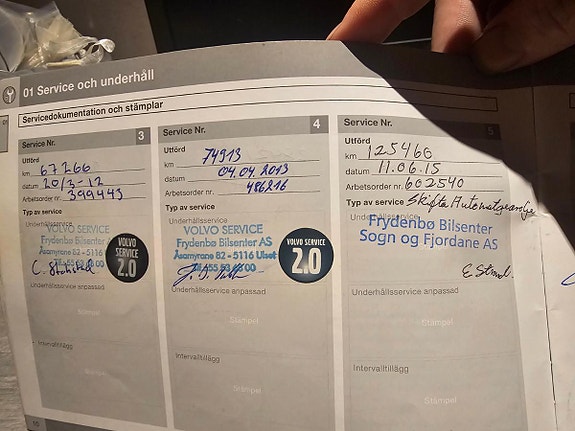 01 Service och underhåll
Servicedokumentation och stämplar
Service Nr. 3
Utförd
km 67266
datum 20/3-12
Arbetsorder nr. 399443
Typ av service
Underhållsservice
VOLVO SERVICE
Frydenbø Bilsenter AS
Åsamyrane 82 - 5116 Ulset
VOLVO
SERVICE
2.0
Underhållsservice anpassad
Stämpel
Intervalltillägg
Stämpel
Service Nr. 4
Utförd
km 74913
datum 04.04.2013
Arbetsorder nr. 486216
Typ av service
Underhållsservice
VOLVO SERVICE
Frydenbø Bilsenter AS
Åsamyrane 82 - 5116 Ulset
VOLVO SERVICE
2.0
Underhållsservice anpassad
Stämpel
Intervalltillägg
Stämpel
Service Nr. 5
Utförd
km 125460
datum 11.06.15
Arbetsorder nr. 602540
Typ av service Skifte
Underhållsservice
Frydenbø Bilsenter
Sogn og Fjordane AS
Underhållsservice anpassad
Stämpel
Intervalltillägg
Stämpel
10